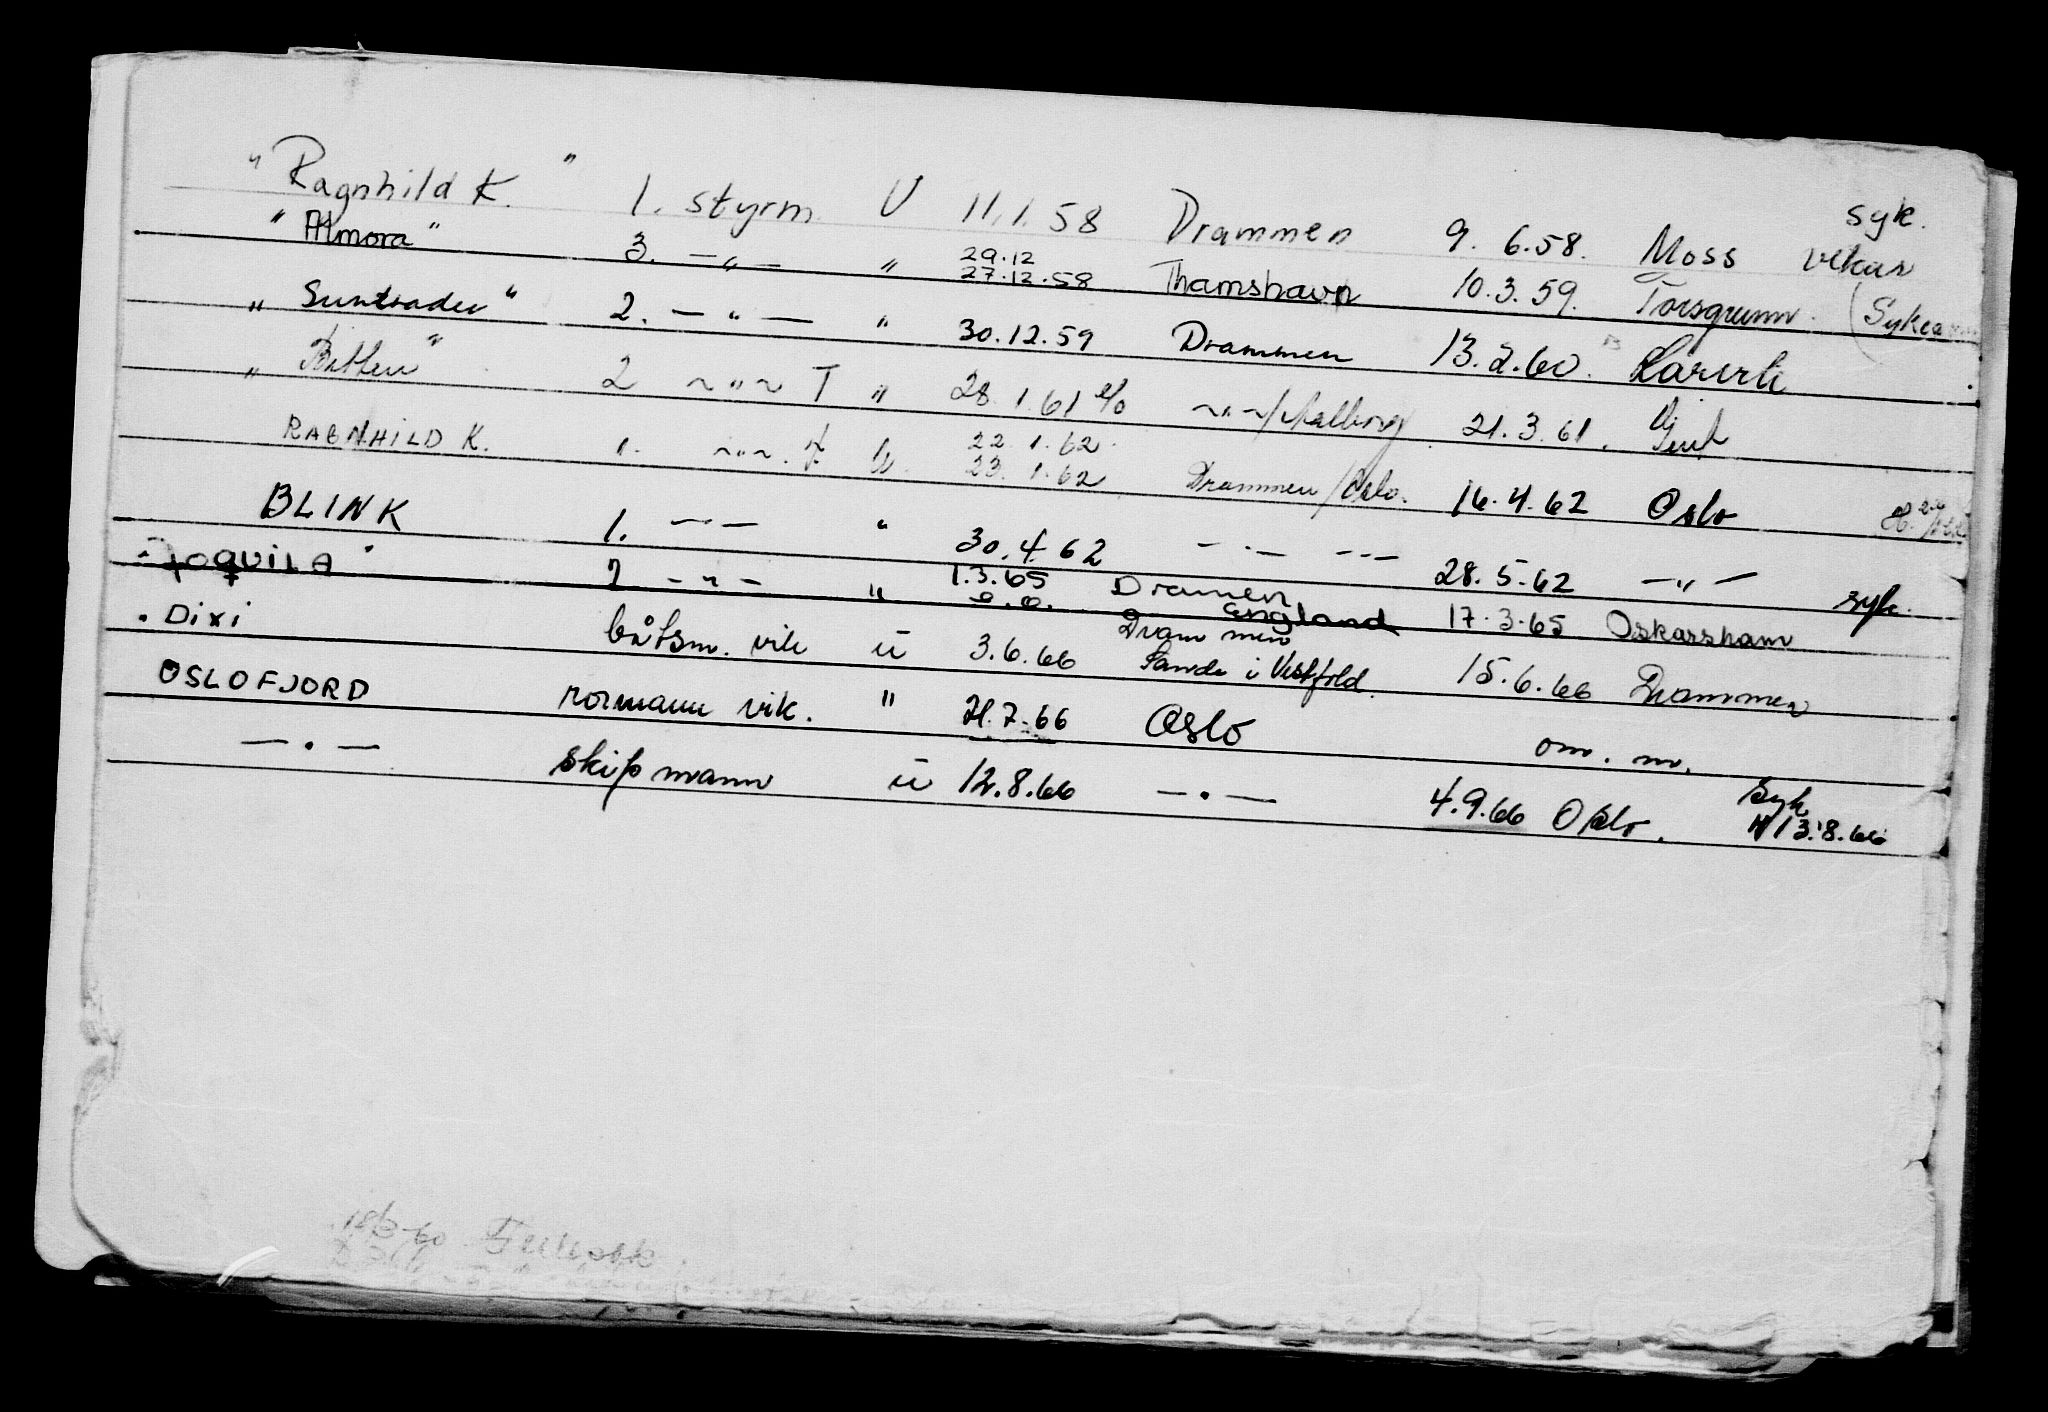 " Ragnhild K. " 1. styrm. U 11.1.58 Drammen 9. 6.58. Moss syk. vikar
" Almora " 3. — " — " 29.12 27.12.58 Thamshavn 10.3.59. Torsgrunn
" Suntrader " 2. — " — " 30.12.59 Drammen 13.2.60.
" " 2 ~ " ~ T " 28.1.61 ~ " ~ / Aalborg 21.3.61.
RAGNHILD K. 1. ~ " ~ . 22.1.62 23.1.62 Drammen / Oslo. 16.4.62 Oslo
BLINK 1. — " — " 30.4.62 — " — — " — 28.5.62 — " — syk.
" 2 — " — " 1.3.65 Dramen England 17.3.65 Oskarsham
. Dixi båtsm. vik u 3.6.66 Drammen Sande i Vestfold. 15.6.66 Drammen
OSLOFJORD rormann vik. " 21.7.66 Oslo om. m.
— " — skipmann u 12.8.66 — " — 4.9.66 Oslo. Syk 13.8.66